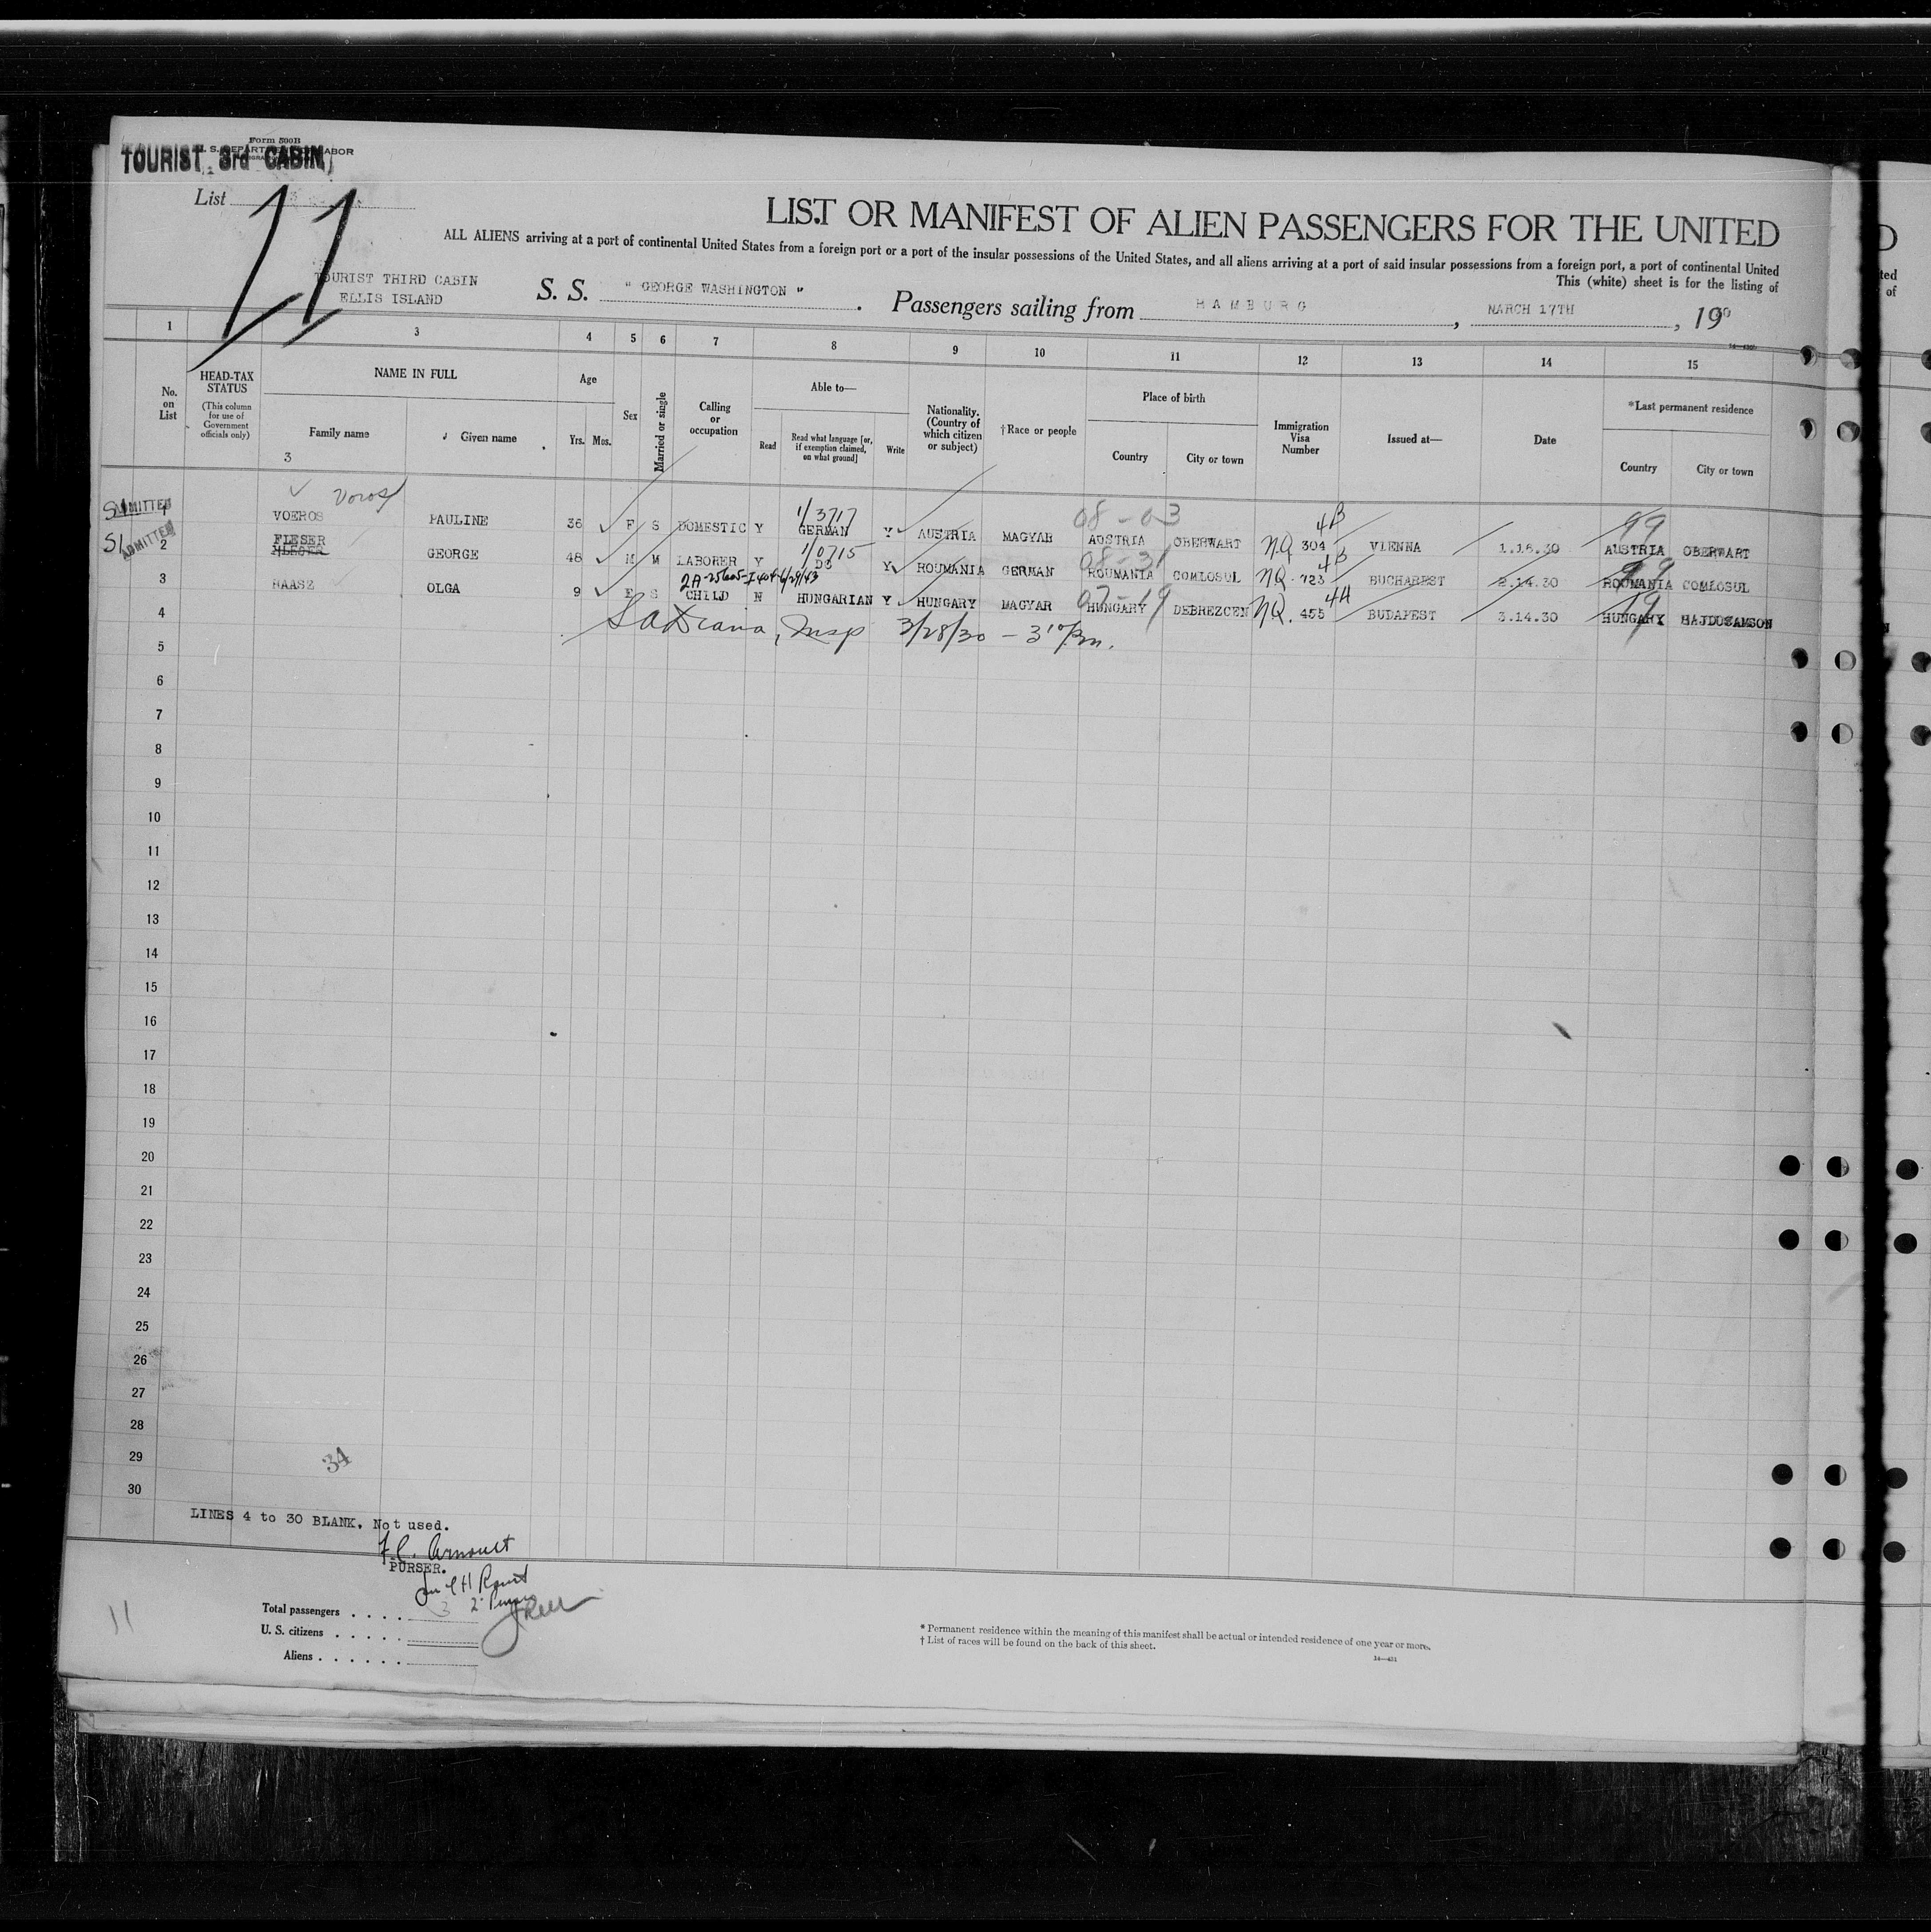 Form 500B
TOURIST 3rd CABIN
List 11
LIST OR MANIFEST OF ALIEN PASSENGERS FOR THE UNITED
ALL ALIENS arriving at a port of continental United States from a foreign port or a port of the insular possessions of the United States, and all aliens arriving at a port of said insular possessions from a foreign port, a port of continental United
This (white) sheet is for the listing of
TOURIST THIRD CABIN
ELLIS ISLAND
S. S. " GEORGE WASHINGTON ". Passengers sailing from HAMBURG, MARCH 17TH, 19
1 3 4 5 6 7 8 9 10 11 12 13 14 15
No. on List
HEAD-TAX STATUS (This column for use of Government officials only)
NAME IN FULL
Family name Given name
Age Yrs. Mos.
Sex
Married or single
Calling or occupation
Able to—
Read Read what language [or, if exemption claimed, on what ground] Write
Nationality. (Country of which citizen or subject)
†Race or people
Place of birth
Country City or town
Immigration Visa Number
Issued at—
Date
*Last permanent residence
Country City or town
3
Voros
1/3717 08-03 4B 99
SI ADMITTED 1 VOEROS PAULINE 36 F S DOMESTIC Y GERMAN Y AUSTRIA MAGYAR AUSTRIA OBERWART N.Q. 304 VIENNA 1.16.30 AUSTRIA OBERWART
FLESER
1/0715 08-31 4B 99
SI ADMITTED 2 GEORGE 48 M M LABORER Y DO Y ROUMANIA GERMAN ROUMANIA COMLOSUL NQ. 723 BUCHAREST 2.14.30 ROUMANIA COMLOSUL
2A-25605-I404-6/29/43 07-19 4A 19
3 HAASZ OLGA 9 F S CHILD N HUNGARIAN Y HUNGARY MAGYAR HUNGARY DEBREZCEN NQ. 455 BUDAPEST 3.14.30 HUNGARY HAJDUSAMSON
4
Insp 3/28/30 — 3 10 Pm.
5
6
7
8
9
10
11
12
13
14
15
16
17
18
19
20
21
22
23
24
25
26
27
28
29
30
34
LINES 4 to 30 BLANK, Not used.
PURSER.
11
Total passengers . . . . 3
U. S. citizens . . . . .
Aliens . . . . . .
* Permanent residence within the meaning of this manifest shall be actual or intended residence of one year or more.
† List of races will be found on the back of this sheet.
14—431